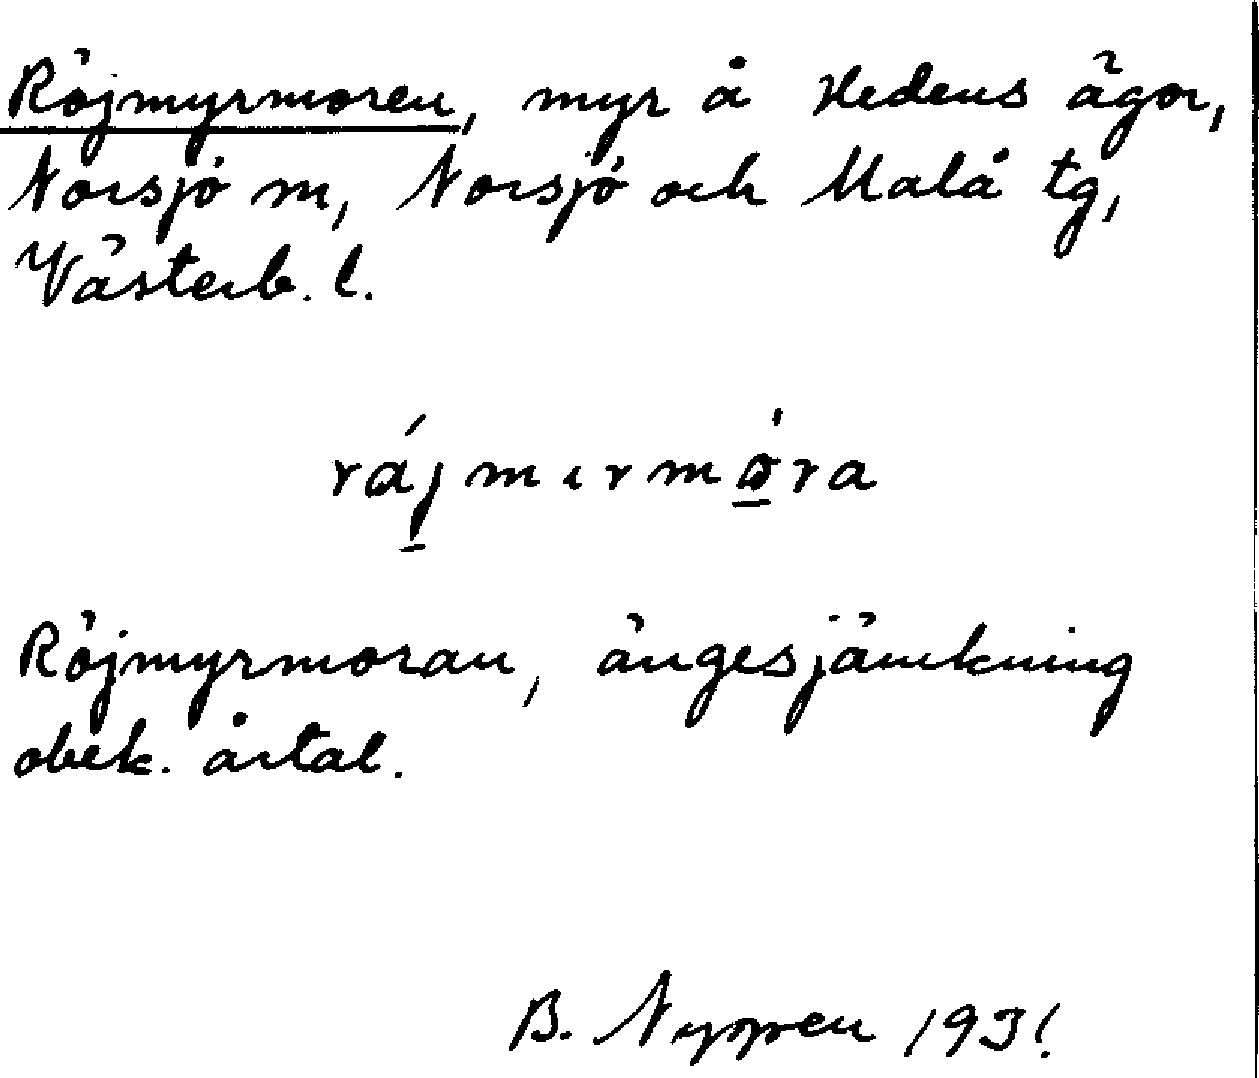 Röjmyrmoren, myr å Hedens ägor,
Norsjö m, Norsjö och Malå tg,
Västerb. l.
Röjmyrmoran, ängesjämkning
obek. årtal.
B. Nyppen 1931.